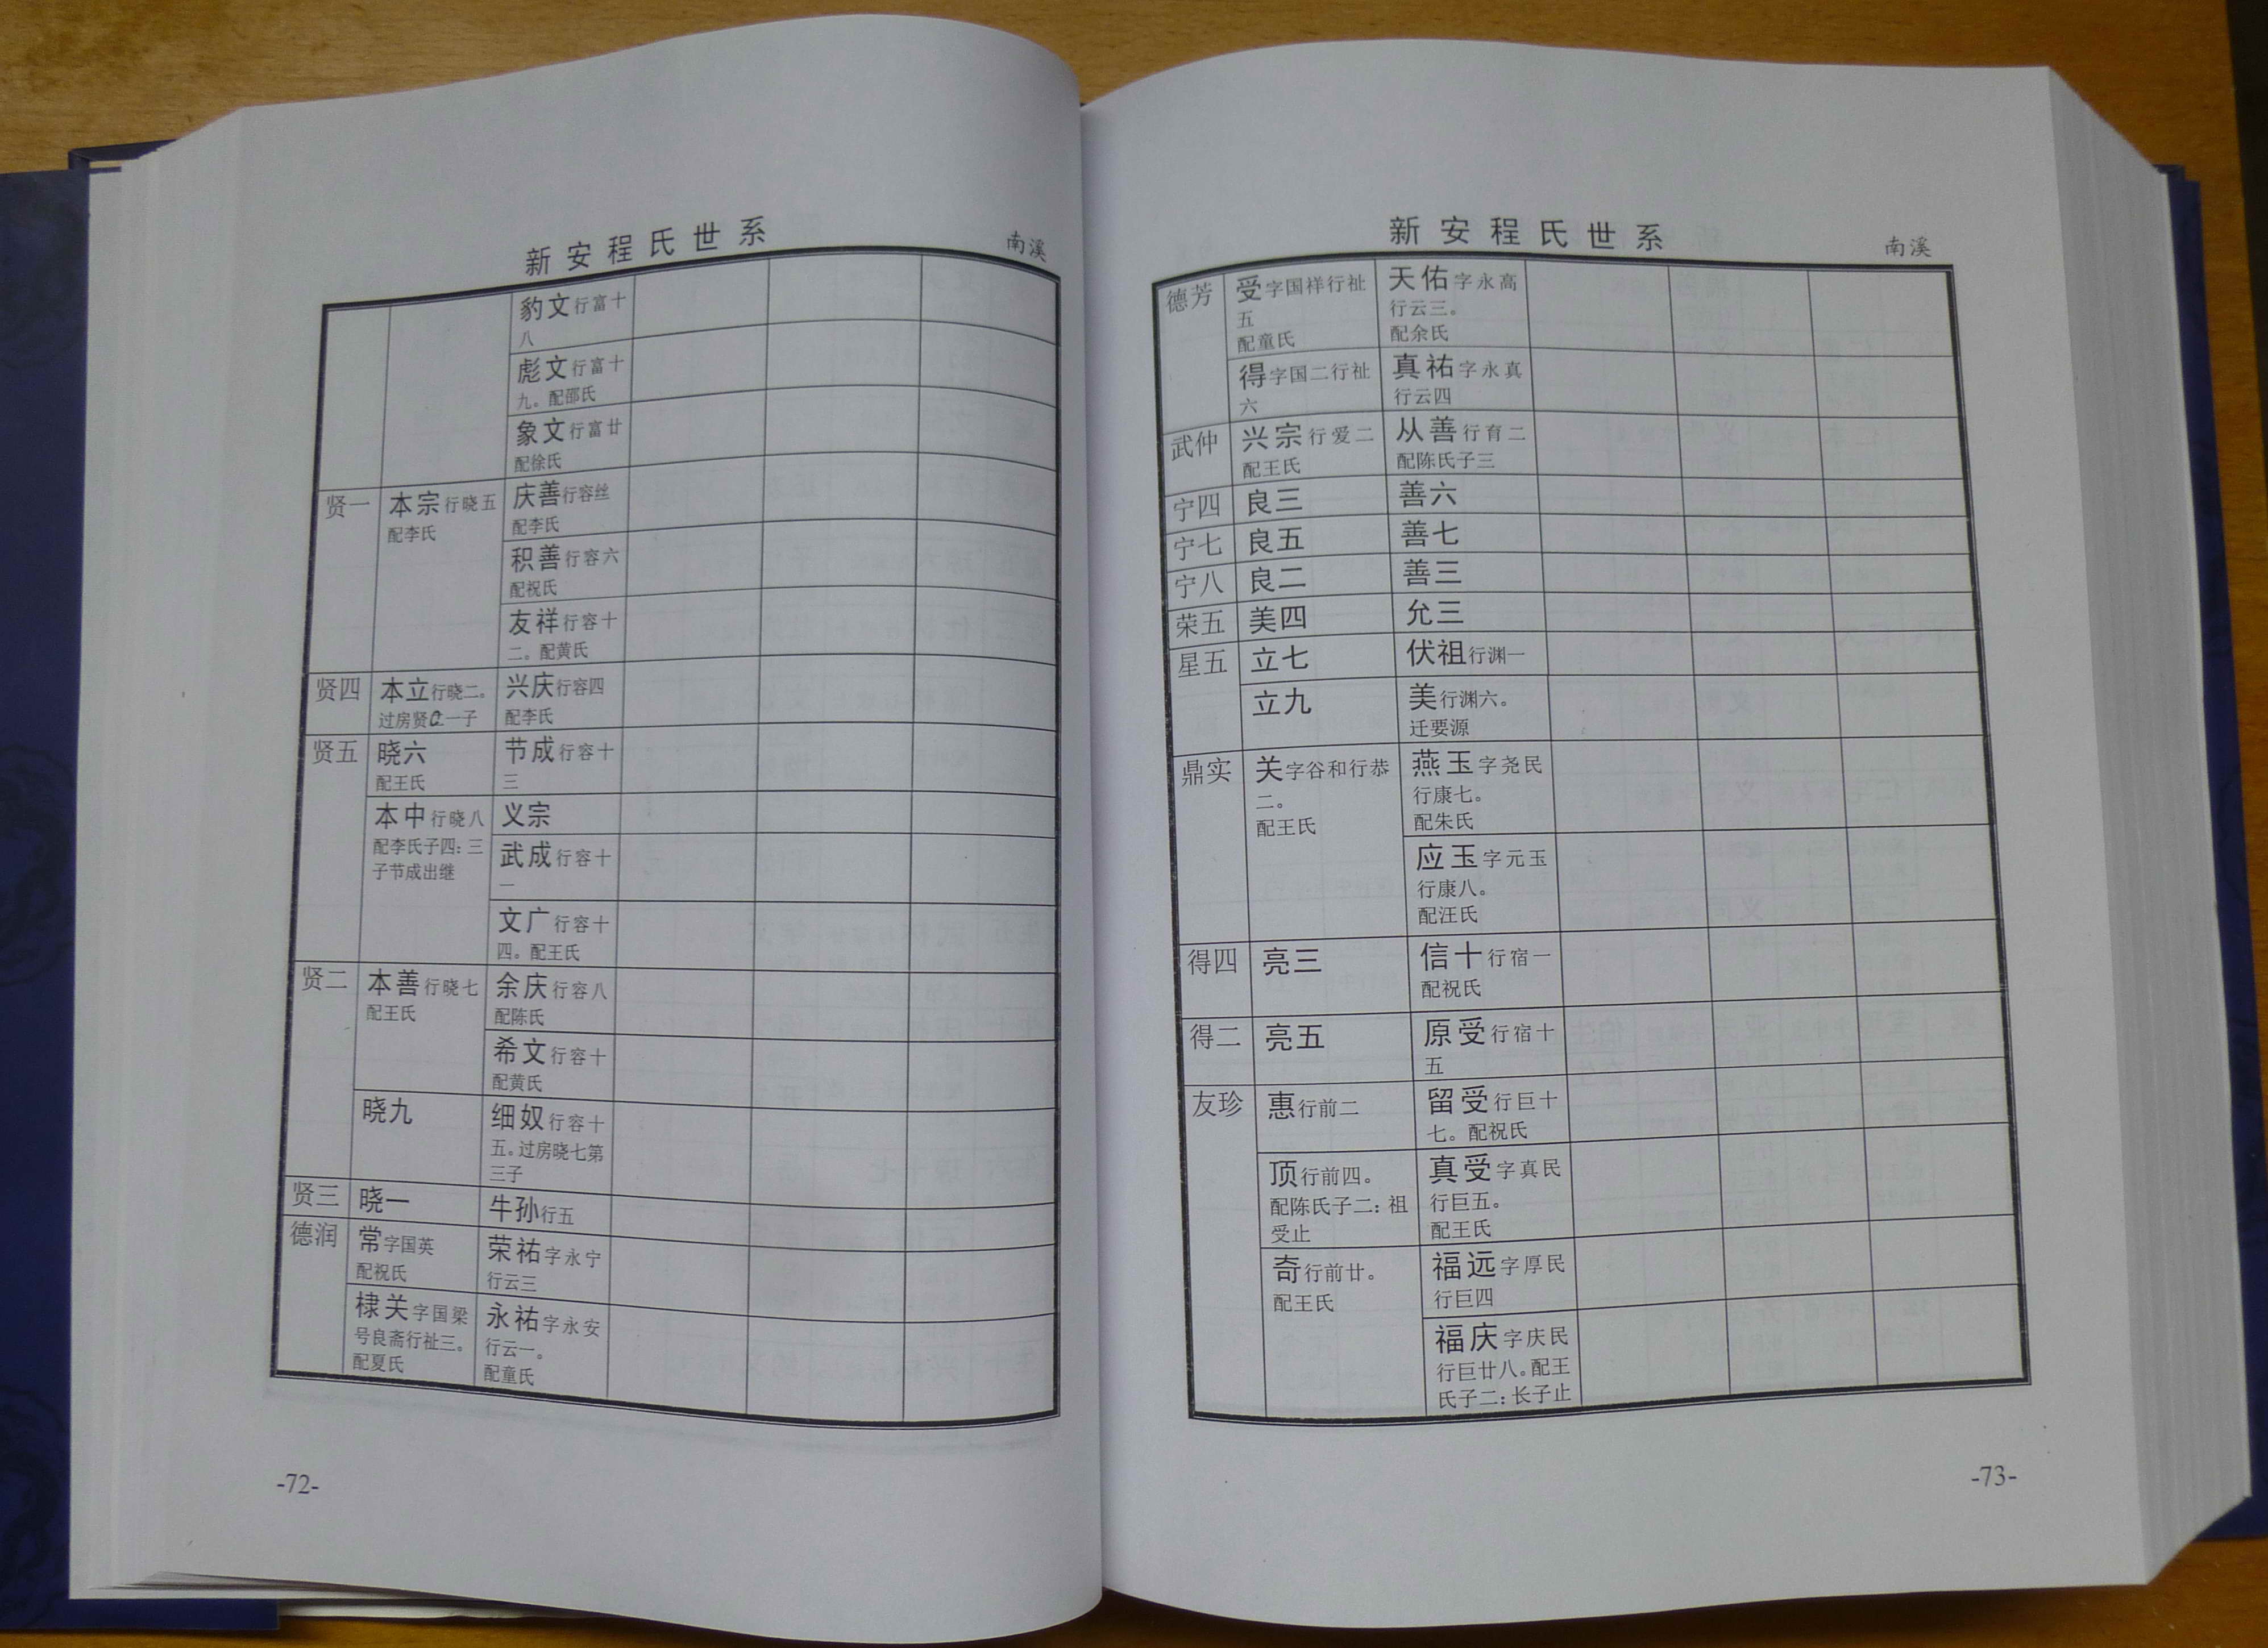 新安程氏世系
南溪
豹文行富十
八
彪文行富十
九。配邵氏
象文行富廿
配徐氏
贤一
本宗行晓五
配李氏
庆善行容丝
配李氏
积善行容六
配祝氏
友祥行容十
二。配黄氏
贤四
本立行晓二。
过房贤 一子
兴庆行容四
配李氏
贤五
晓六
配王氏
节成行容十
三
本中行晓八
配李氏子四：三
子节成出继
义宗
武成行容十
一
文广行容十
四。配王氏
贤二
本善行晓七
配王氏
余庆行容八
配陈氏
希文行容十
配黄氏
晓九
细奴行容十
五。过房晓七第
三子
贤三
晓一
牛孙行五
德润
常字国英
配祝氏
荣祐字永宁
行云三
棣关字国梁
号良斋行祉三。
配夏氏
永祐字永安
行云一。
配童氏
-72-
新安程氏世系
南溪
德芳
受字国祥行祉
五
配童氏
天佑字永高
行云三。
配余氏
得字国二行祉
六
真祐字永真
行云四
武仲
兴宗行爱二
配王氏
从善行育二
配陈氏子三
宁四
良三
善六
宁七
良五
善七
宁八
良二
善三
荣五
美四
允三
星五
立七
伏祖行渊一
立九
美行渊六。
迁要源
鼎实
关字谷和行恭
二。
配王氏
燕玉字尧民
行康七。
配朱氏
应玉字元玉
行康八。
配汪氏
得四
亮三
信十行宿一
配祝氏
得二
亮五
原受行宿十
五
友珍
惠行前二
留受行巨十
七。配祝氏
顶行前四。
配陈氏子二：祖
受止
真受字真民
行巨五。
配王氏
奇行前廿。
配王氏
福远字厚民
行巨四
福庆字庆民
行巨廿八。配王
氏子二：长子止
-73-